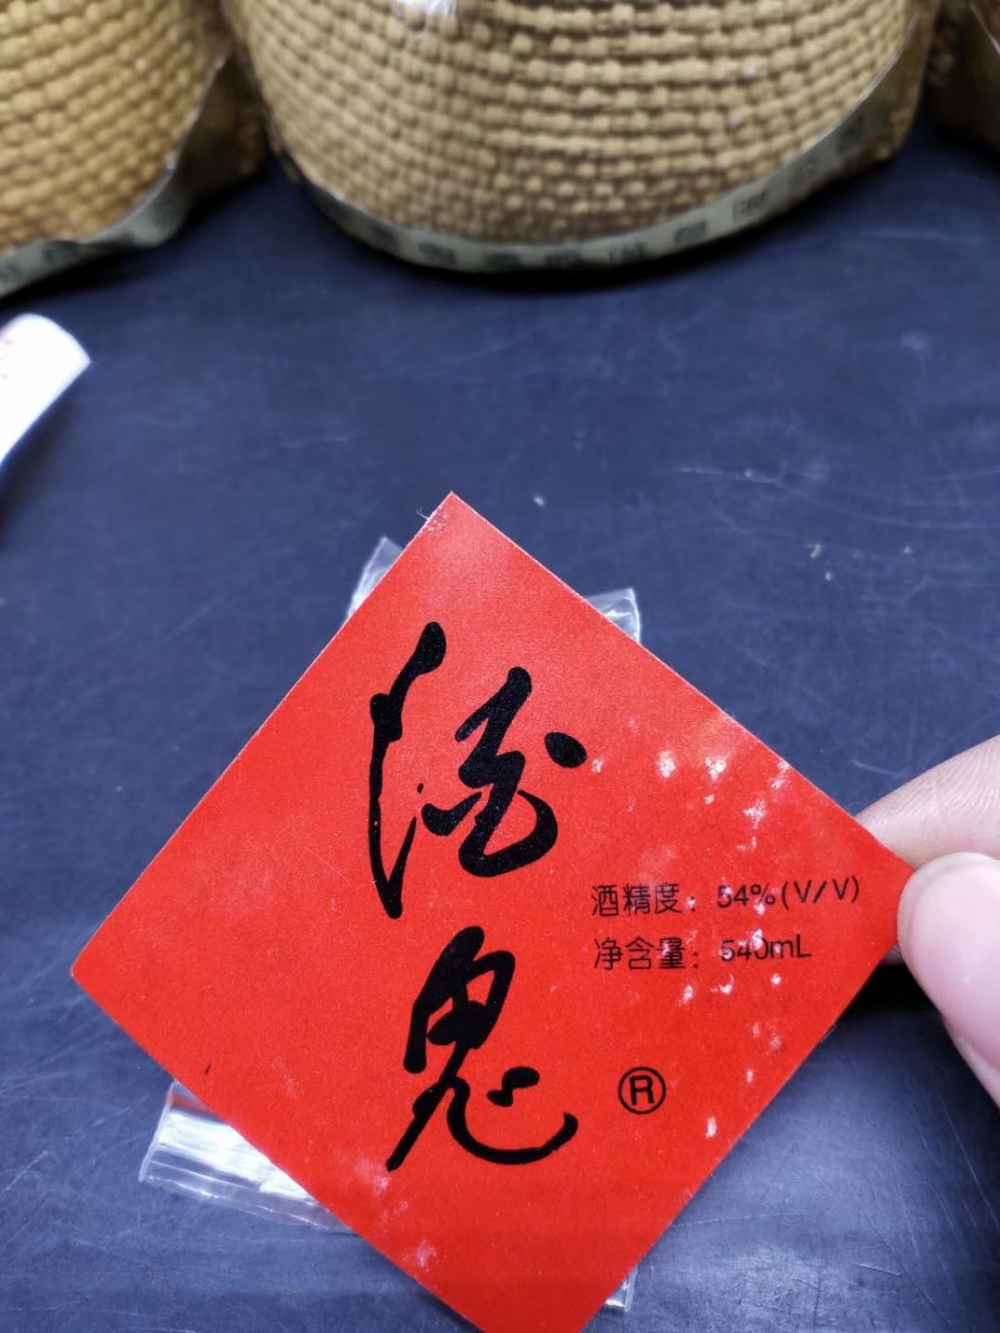 酒
鬼
酒精度：54%(V/V)
净含量：540mL
®